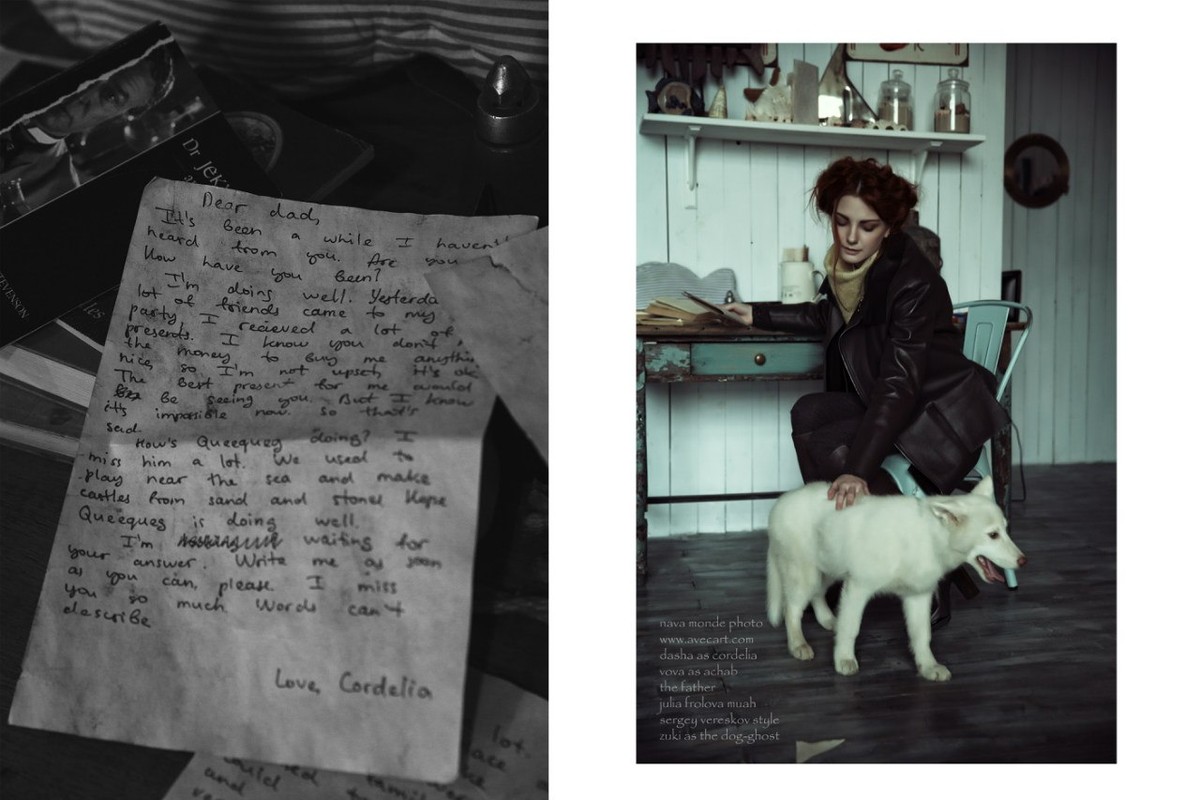 Dr Jek
STEVENSON
Dear dad,
It's been a while I haven't
heard from you. Are you
How have you been?
I'm doing well. Yesterda
lot of friends came to my
party. I recieved a lot of
presents. I know you don't
the money to buy me anythin
nice, so I'm not upset, it's ok
The best present for me would
be seeing you. But I know
it's impossible now. So that's
sad.
How's Queequeg doing? I
miss him a lot. We used to
play near the sea and make
castles from sand and stone! Hope
Queequeg is doing well.
I'm waiting for
your answer. Write me as soon
as you can, please. I miss
you so much words can't
describe
Love, Cordelia
lot.
and
nava monde photo
www.avecart.com
dasha as cordelia
vova as achab
the father
julia frolova muah
sergey vereskov style
zuki as the dog-ghost